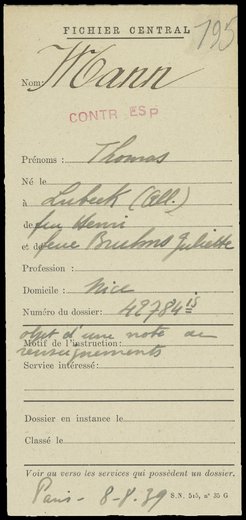 FICHIER CENTRAL
195
Nom Mann
CONTR ESP
Prénoms : Thomas
Né le
à Lubeck (All.)
de feu Henri
et de feue Bruhns Juliette
Profession :
Domicile : Nice
Numéro du dossier: 42784
objet d'une note de
Motif de l'instruction:
renseignements
Service intéressé:
Dossier en instance le
Classé le
Voir au verso les services qui possèdent un dossier.
Paris - 8-8.39
S.N. 515, n° 35 G